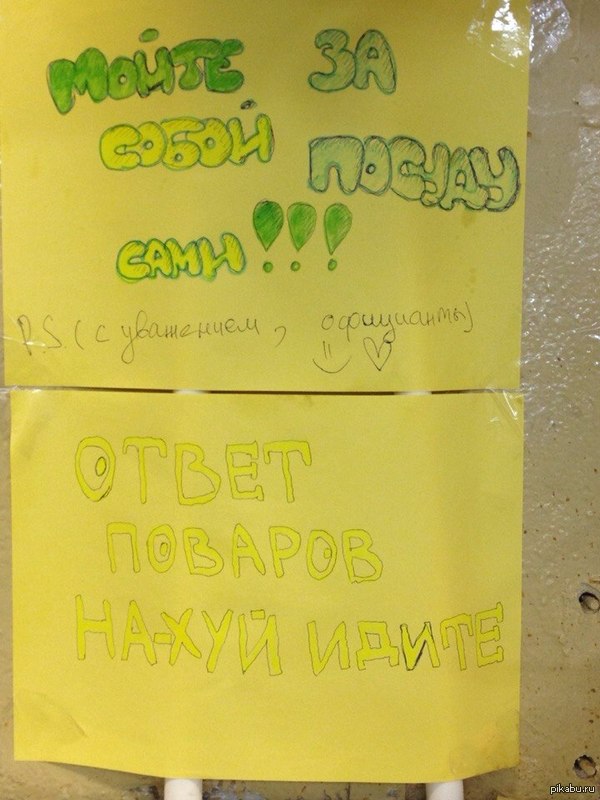 МОЙТЕ ЗА
СОБОЙ ПОСУДУ
САМИ!!!
P.S. (с уважением, официанты)
ОТВЕТ
ПОВАРОВ
НА-ХУЙ ИДИТЕ
pikabu.ru